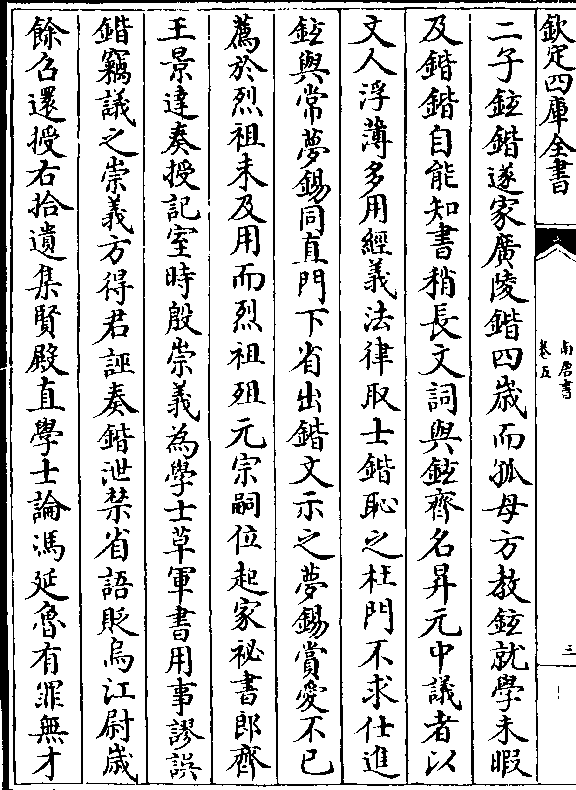 欽定四庫全書
南唐書
卷五
三
二子鉉鍇遂家廣陵鍇四歲而孤母方教鉉就學未暇
及鍇鍇自能知書稍長文詞與鉉齊名昇元中議者以
文人浮薄多用經義法律取士鍇恥之杜門不求仕進
鉉與常夢錫同直門下省出鍇文示之夢錫賞愛不已
薦於烈祖未及用而烈祖殂元宗嗣位起家祕書郎齊
王景達奏授記室時殷崇義為學士草軍書用事謬誤
鍇竊議之崇義方得君誣奏鍇泄禁省語貶烏江尉歲
餘召還授右拾遺集賢殿直學士論馮延魯有罪無才